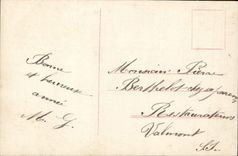 Bonne
et heureuse
année
M. G.
Monsieur Pierre
Berthelot
Restaurateur
Valmont